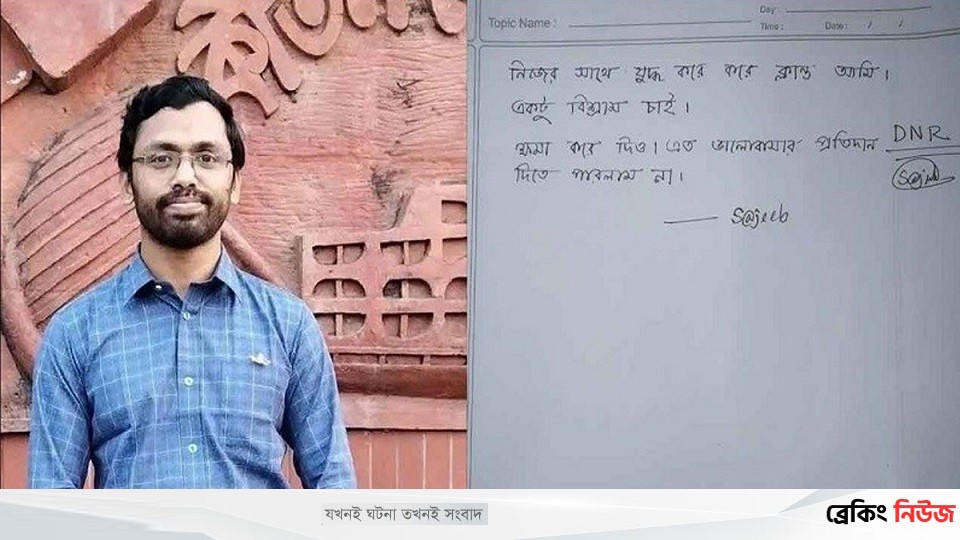 Topic Name :
Day :
Time :
Date : / /
নিজের সাথে যুদ্ধ করে করে ক্লান্ত আমি।
একটু বিশ্রাম চাই।
ক্ষমা করে দিও। এত ভালোবাসার প্রতিদান
দিতে পারলাম না।
DNR
S@jeeb
যখনই ঘটনা তখনই সংবাদ
ব্রেকিং নিউজ